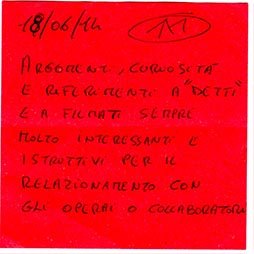 18/06/14
ARGOMENTI, CURIOSITÀ
E RIFERIMENTI A "DETTI"
E A FILMATI SEMPRE
MOLTO INTERESSANTI E
ISTRUTTIVI PER IL
RELAZIONAMENTO CON
GLI OPERAI O COLLABORATORI